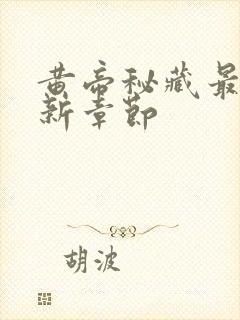 黄帝秘藏最
新章節
胡波